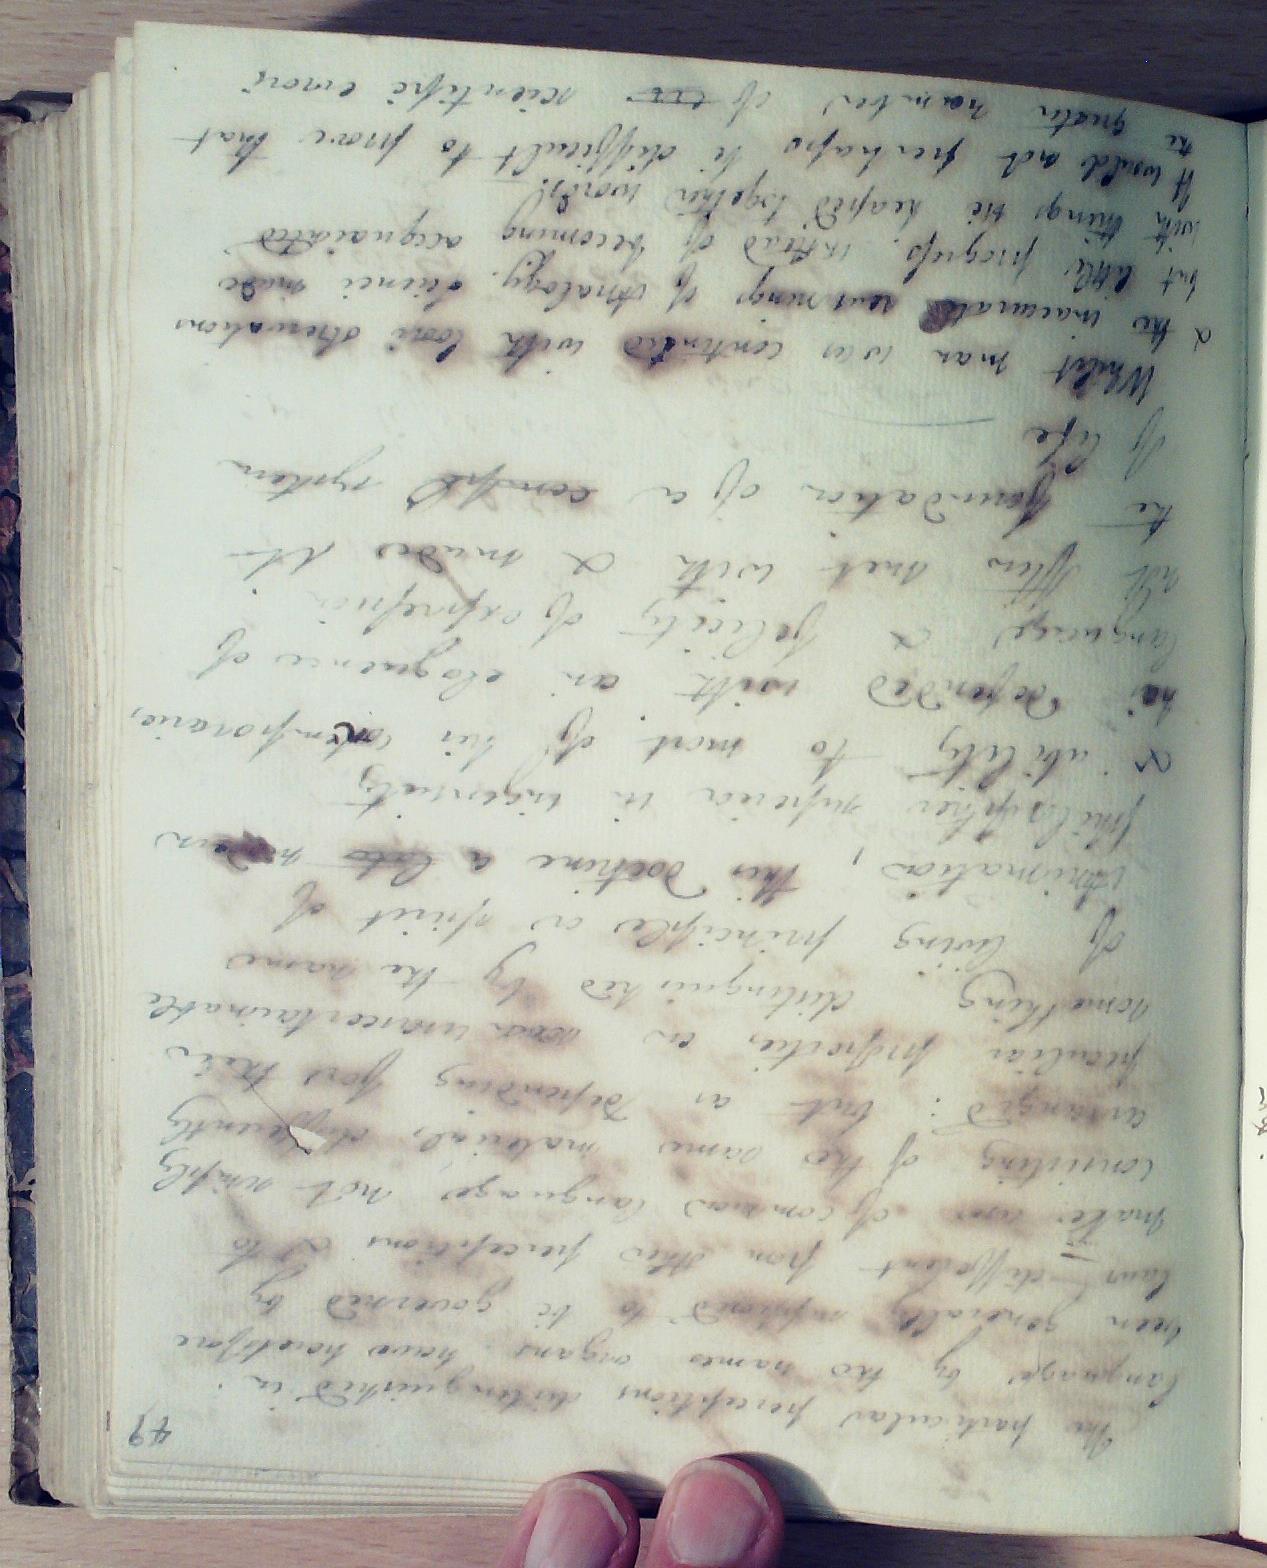 49
The particular perceptions distinguished in
language by the names organs have heretofore
been generally supposed to be governed by
laws different from other perceptions & to
make use of common language not aptly
consisting of the same materials differently
arranged; but as depending for their
peculiar properties on an uncertainable
something distinguished by the name
of living principle or spirit of
Animation; this doctrine a late
Philosopher superior in ingenuity
& ability to most of his contemporaries
has defended with an eloquence of
language & felicity of expression
not often met with & made it
the foundation of a system
of life
Whilst man was contented with loose attention
& the inaccurate of Analogy science made
but little progress; instead of becoming acquainted
with things He heaped together words.
It would not perhaps be difficult to prove that
the greater number of scientific errors